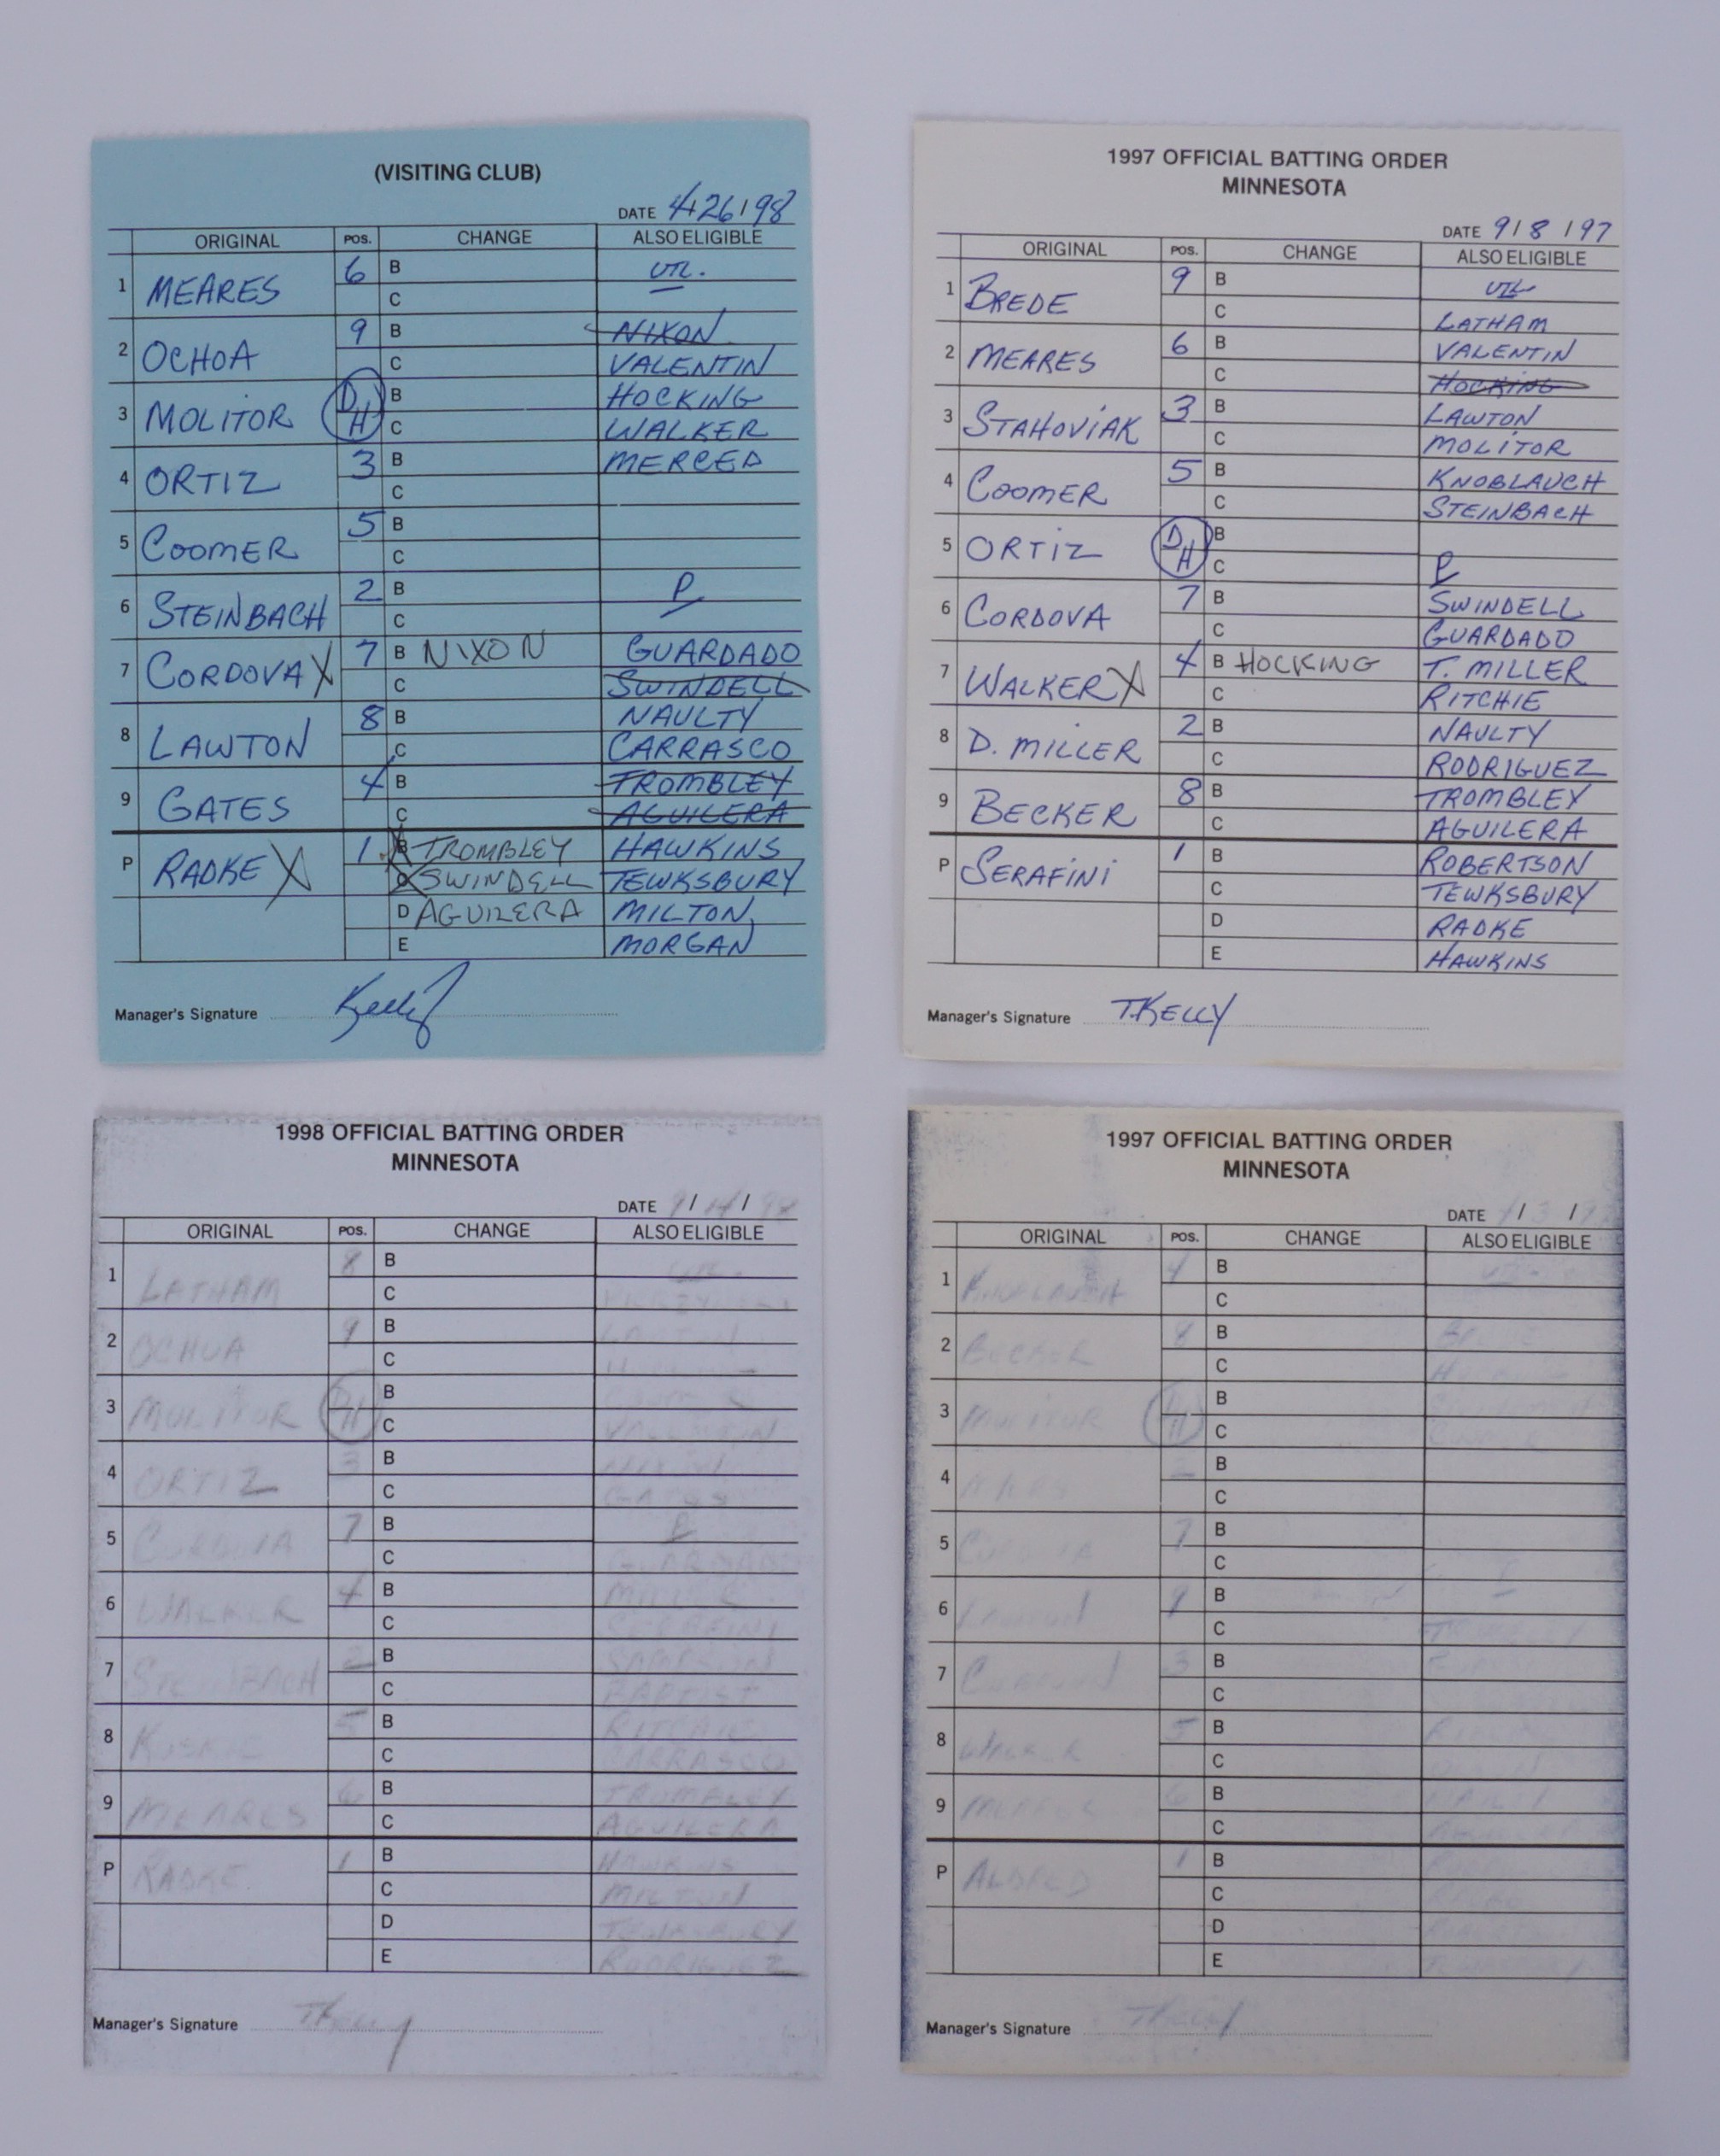 (VISITING CLUB)
DATE 4/26/98
ORIGINAL POS. CHANGE ALSO ELIGIBLE
1 MEARES 6 B UTL.
C
2 OCHOA 9 B NIXON
C VALENTIN
3 MOLITOR DH B HOCKING
C WALKER
4 ORTIZ 3 B MERCED
C
5 COOMER 5 B
C
6 STEINBACH 2 B P
C
7 CORDOVA X 7 B NIXON GUARDADO
C SWINDELL
8 LAWTON 8 B NAULTY
C CARRASCO
9 GATES 4 B TROMBLEY
C AGUILERA
P RADKE X 1 B TROMBLEY HAWKINS
C SWINDELL TEWKSBURY
D AGUILERA MILTON
E MORGAN
Manager's Signature Kelly
1997 OFFICIAL BATTING ORDER
MINNESOTA
DATE 9/8/97
ORIGINAL POS. CHANGE ALSO ELIGIBLE
1 BREDE 9 B UTL
C LATHAM
2 MEARES 6 B VALENTIN
C HOCKING
3 STAHOVIAK 3 B LAWTON
C MOLITOR
4 COOMER 5 B KNOBLAUCH
C STEINBACH
5 ORTIZ DH B
C P
6 CORDOVA 7 B SWINDELL
C GUARDADO
7 WALKER X 4 B HOCKING T. MILLER
C RITCHIE
8 D. MILLER 2 B NAULTY
C RODRIGUEZ
9 BECKER 8 B TROMBLEY
C AGUILERA
P SERAFINI 1 B ROBERTSON
C TEWKSBURY
D RADKE
E HAWKINS
Manager's Signature T.KELLY
1998 OFFICIAL BATTING ORDER
MINNESOTA
DATE 9/ / 
ORIGINAL POS. CHANGE ALSO ELIGIBLE
1 LATHAM 8 B
C
2 OCHOA 9 B LAWTON
C
3 MOLITOR DH B COOMER
C VALENTIN
4 ORTIZ 3 B
C GATES
5 CORDOVA 7 B P
C GUARDADO
6 WALKER 4 B MILLER
C SERAFINI
7 STEINBACH 2 B SAMPSON
C BAPTIST
8 KOSKIE 5 B RITCHIE
C CARRASCO
9 MEARES 6 B TROMBLEY
C AGUILERA
P RADKE 1 B HAWKINS
C MILTON
D TEWKSBURY
E RODRIGUEZ
Manager's Signature TKelly
1997 OFFICIAL BATTING ORDER
MINNESOTA
DATE / 3 /
ORIGINAL POS. CHANGE ALSO ELIGIBLE
1 KNOBLAUCH 4 B UTL
C
2 BECKER 8 B
C
3 MOLITOR DH B
C
4 B
C
5 CORDOVA 7 B
C P
6 LAWTON 9 B
C
7 3 B
C
8 WALKER 5 B
C
9 MEARES 6 B
C
P ALDRED 1 B
C
D
E
Manager's Signature TKelly